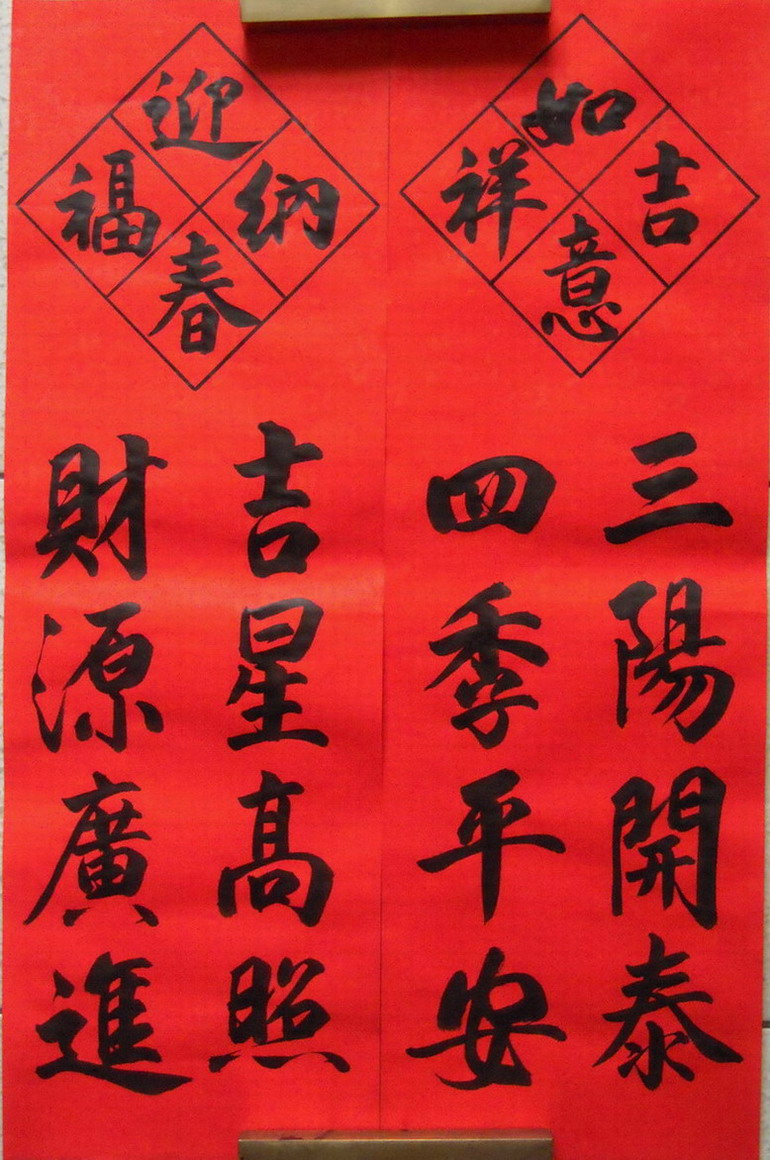 吉祥如意
納福迎春
三陽開泰
四季平安
吉星高照
財源廣進